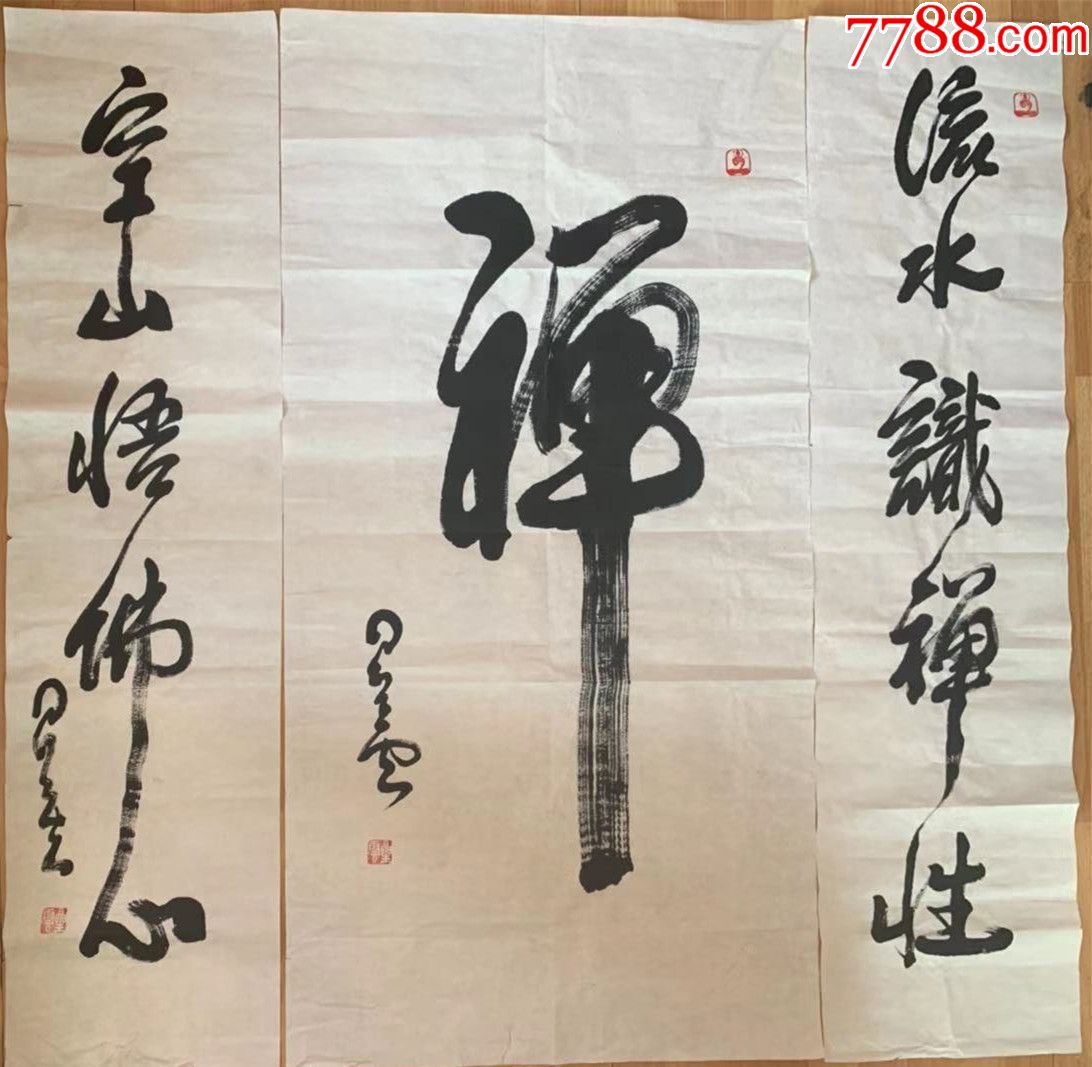 7788.com
流水識禪性
禪
空山悟佛心